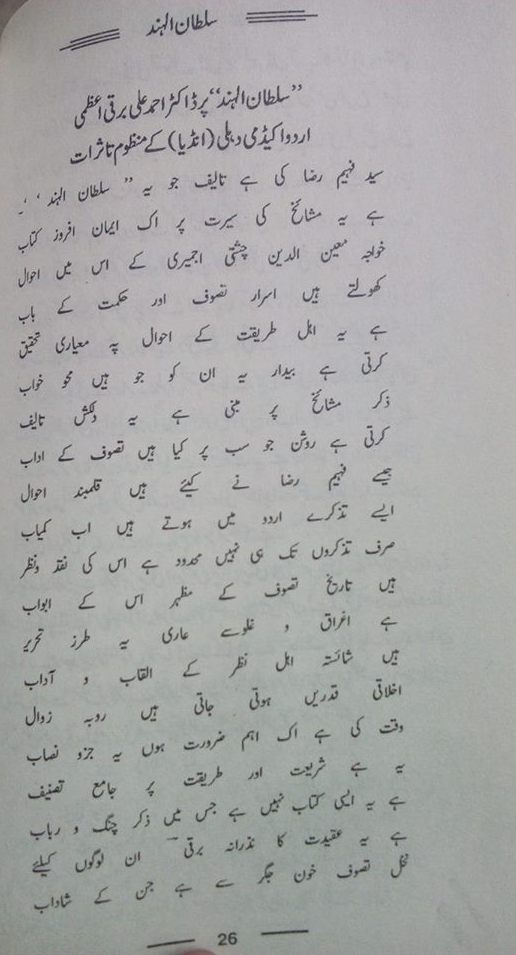 سلطان الہند
’’سلطان الہند‘‘ پر ڈاکٹر احمد علی برقی اعظمی
اردو اکیڈمی دہلی (انڈیا) کے منظوم تاثرات
سید فہیم رضا کی ہے تالیف جو یہ ’’سلطان الہند‘‘۔
ہے یہ مشائخ کی سیرت پر اک ایمان افروز کتاب
خواجہ معین الدین چشتی اجمیری کے اس میں احوال
کھولتے ہیں اسرار تصوف اور حکمت کے باب
ہے یہ اہل طریقت کے احوال پہ معیاری تحقیق
کرتی ہے بیدار یہ ان کو جو ہیں محو خواب
ذکر مشائخ پر مبنی ہے یہ دلکش تالیف
کرتی ہے روشن جو سب پر کیا ہیں تصوف کے اداب
جیسے فہیم رضا نے کیئے ہیں قلمبند احوال
ایسے تذکرے اردو میں ہوتے ہیں اب کمیاب
صرف تذکروں تک ہی نہیں محدود ہے اس کی نقد ونظر
ہیں تاریخ تصوف کے مظہر اس کے ابواب
ہے اغراق و غلوسے عاری یہ طرز تحریر
ہیں شائستہ اہل نظر کے القاب و آداب
اخلاقی قدریں ہوتی جاتی ہیں روبہ زوال
وقت کی ہے اک اہم ضرورت ہوں یہ جزو نصاب
یہ ہے شریعت اور طریقت پر جامع تصنیف
ہے یہ ایسی کتاب نہیں ہے جس میں ذکر چنگ و رباب
ہے یہ عقیدت کا نذرانہ برقی ان لوگوں کیلئے
نخل تصوف خون جگر سے ہے جن کے شاداب
26